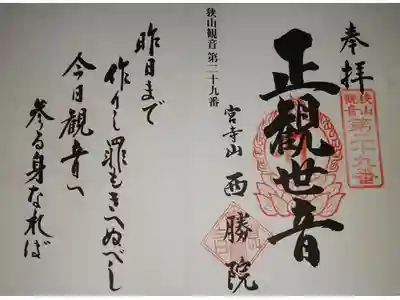 奉拝
狭山
観音
第二十九番
正觀世音
狭山観音 第二十九番
宮寺山 西勝院
昨日まで
作りし罪もきへぬべし
今日観音へ
参る身なれば